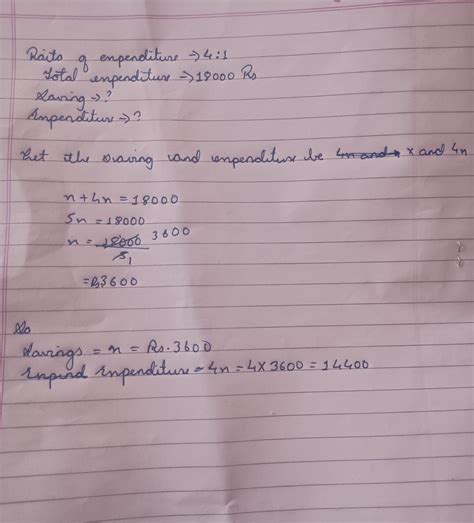 Raito of enpenditure → 4:1
Total enpenditure → 18000 Rs
Saving → ?
Enpenditure → ?
Let the Svaving and enpenditure be 4n and x and 4n
n + 4n = 18000
5n = 18000
n = 18000 3600
5 1
= Rs3600
So
Savings = n = Rs. 3600
Enpind Enpenditure = 4n = 4 x 3600 = 14400